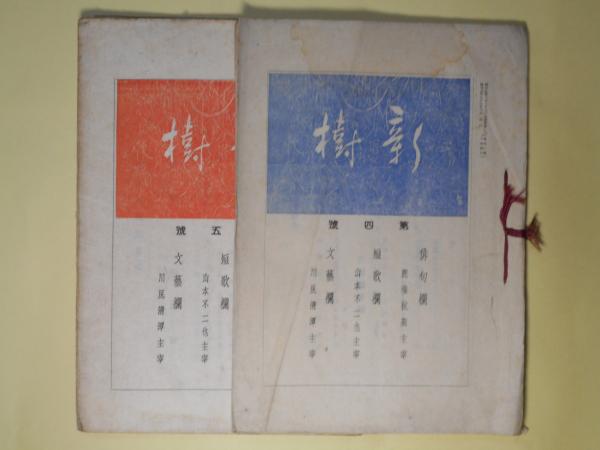 新樹
第四號
俳句欄
主宰
短歌欄
山本不二也主宰
文藝欄
川尻清潭主宰
樹
五號
短歌欄
山本不二也主宰
文藝欄
川尻清潭主宰